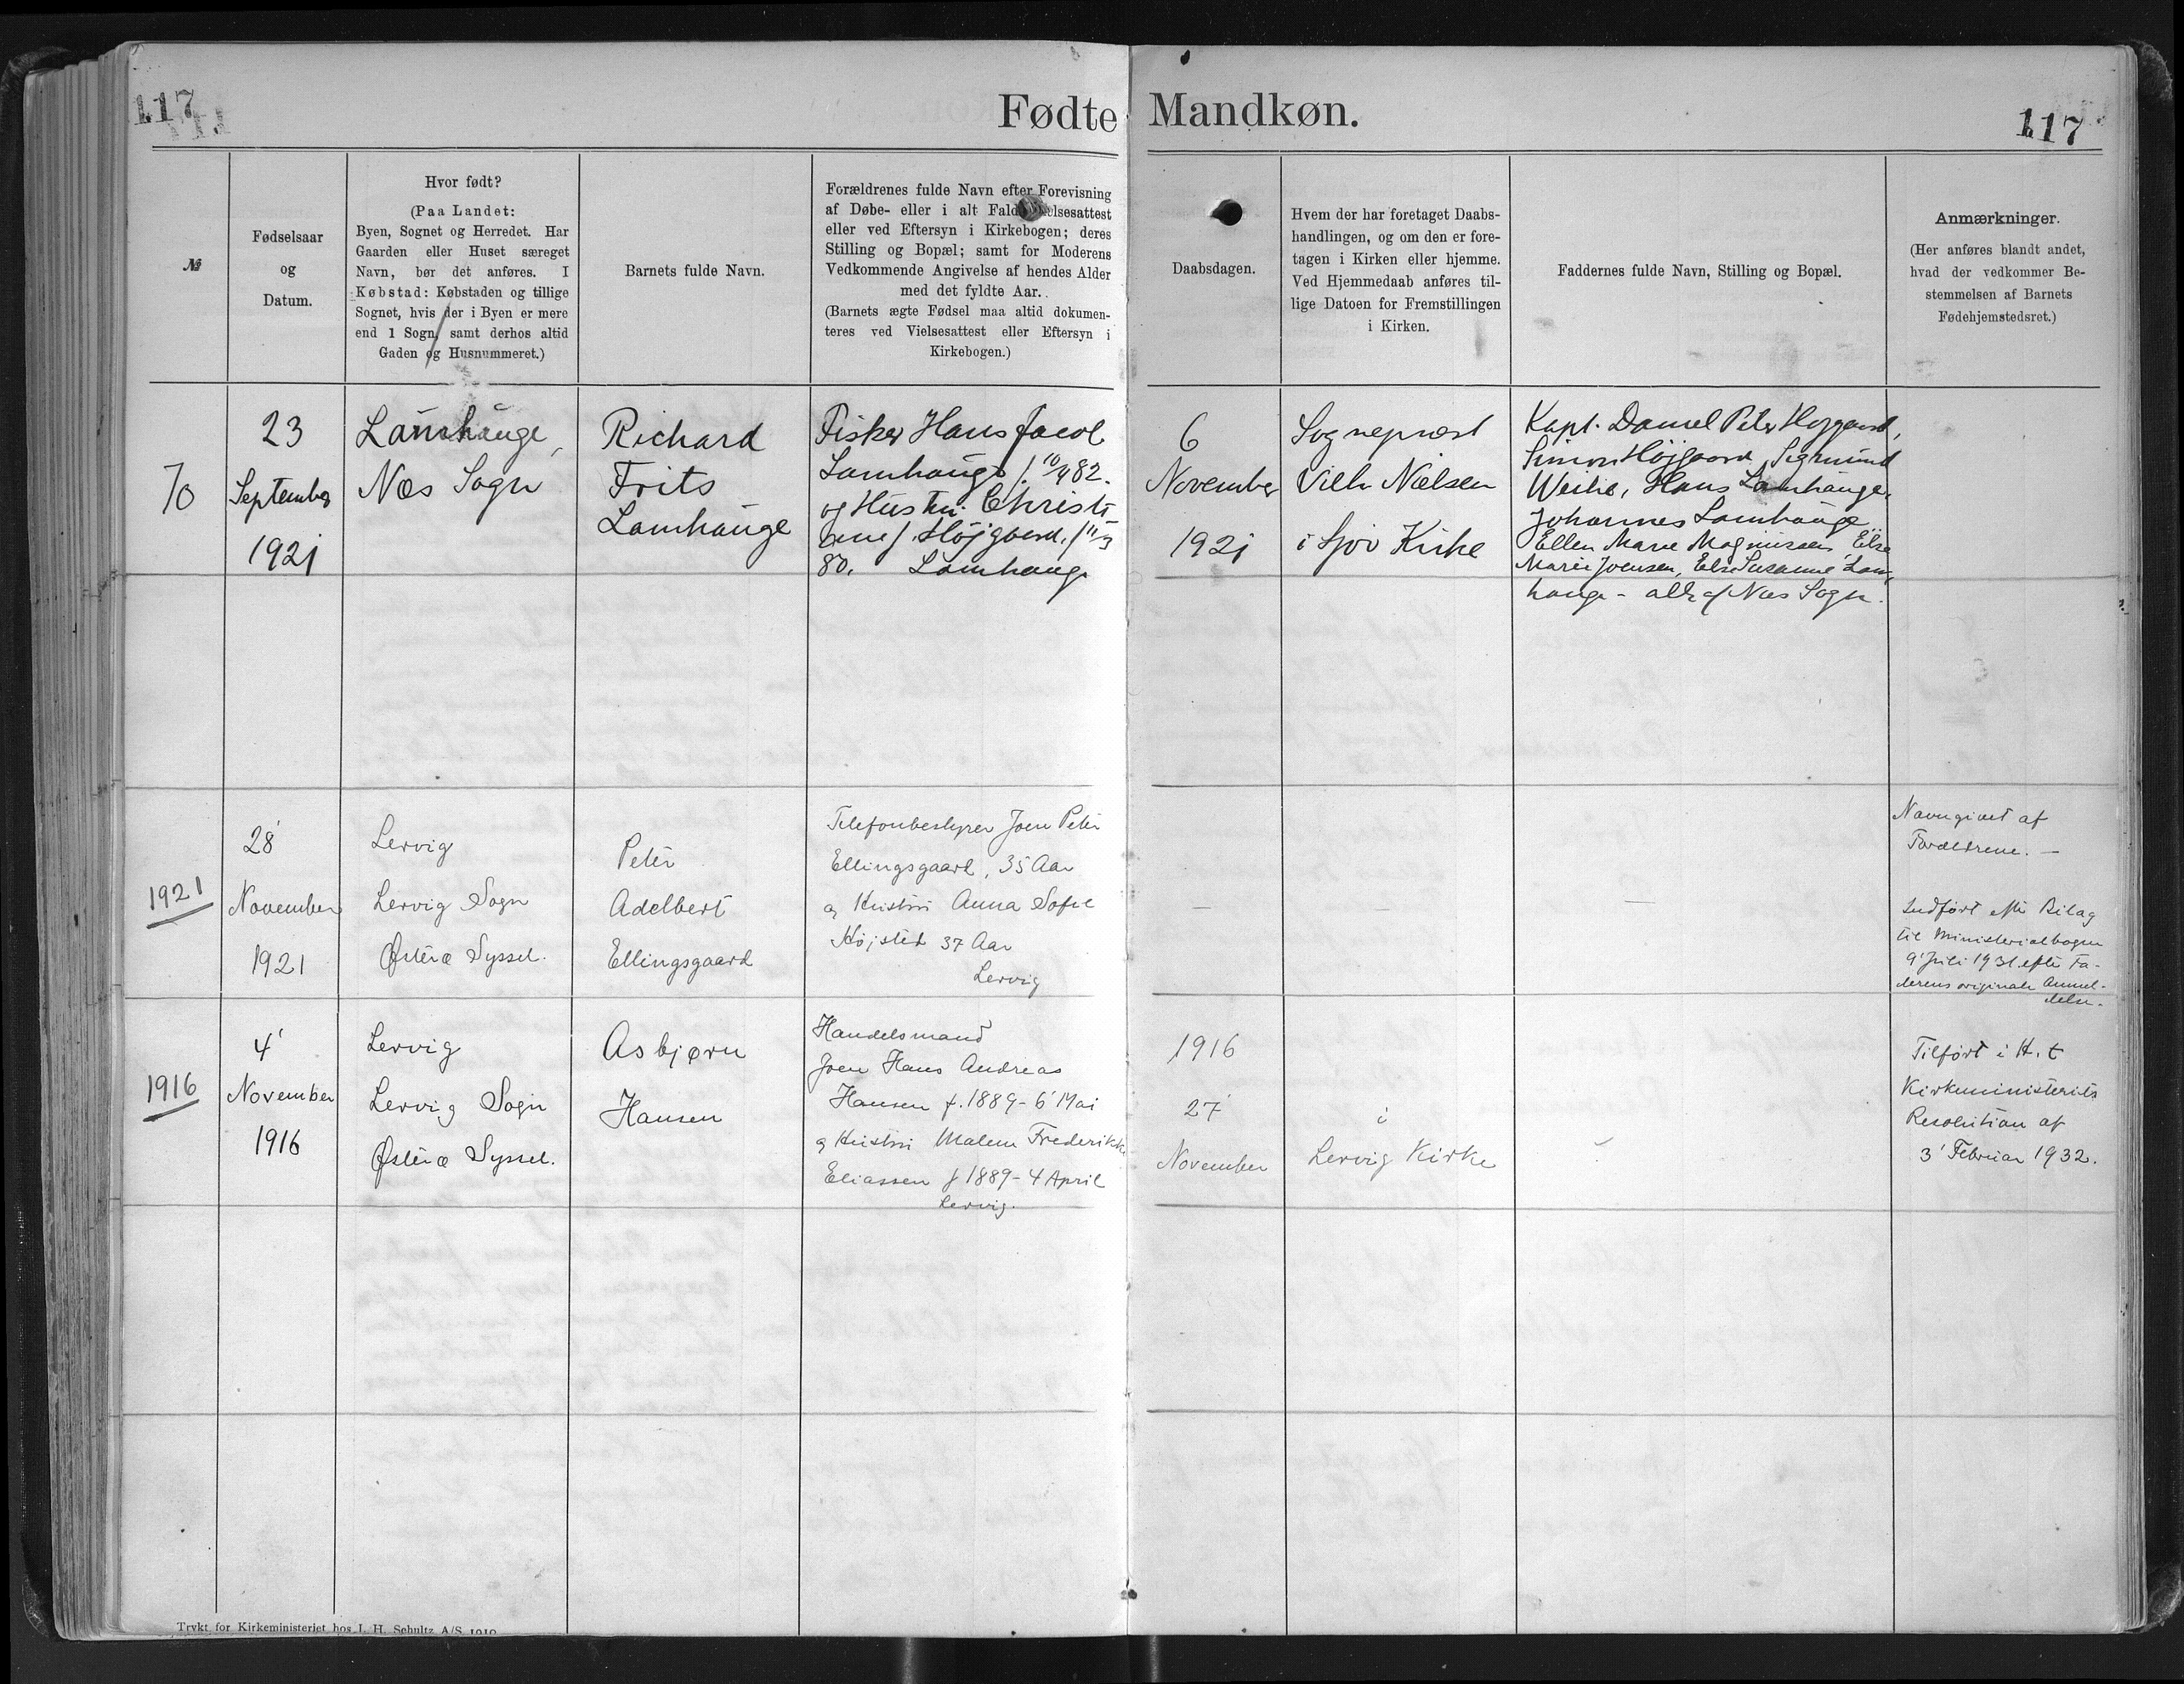 117
Fødte Mandkøn.
117
№
Fødselsaar
og
Datum.
Hvor født?
(Paa Landet:
Byen, Sognet og Herredet. Har
Gaarden eller Huset særeget
Navn, bør det anføres. I
Købstad: Købstaden og tillige
Sognet, hvis der i Byen er mere
end 1 Sogn, samt derhos altid
Gaden og Husnummeret.)
Barnets fulde Navn.
Forældrenes fulde Navn efter Forevisning
af Døbe- eller i alt Fald Vielsesattest
eller ved Eftersyn i Kirkebogen; deres
Stilling og Bopæl; samt for Moderens
Vedkommende Angivelse af hendes Alder
med det fyldte Aar.
(Barnets ægte Fødsel maa altid dokumen-
teres ved Vielsesattest eller Eftersyn i
Kirkebogen.)
Daabsdagen.
Hvem der har foretaget Daabs-
handlingen, og om den er fore-
tagen i Kirken eller hjemme.
Ved Hjemmedaab anføres til-
lige Datoen for Fremstillingen
i Kirken.
Faddernes fulde Navn, Stilling og Bopæl.
Anmærkninger.
(Her anføres blandt andet,
hvad der vedkommer Be-
stemmelsen af Barnets
Fødehjemstedsret.)
70
23
September
1921
Lamhauge,
Næs Sogn
Richard
Frits
Lamhauge
Fisker Hans Jacob
Lamhauge
og Hustru Christi
ane f. Højgaard.
80. Lamhauge
6
November
1921
Sognepræst
Vilh Nielsen
i Sjov Kirke
Kapt. Daniel Peter Højgaard,
Simon Højgaard, Sigmund
Weihe, Hans Lamhauge,
Johannes Lamhauge
Ellen Marie Magnussen, Else
Marie Joensen, Else Susanne Lam-
hauge - alle af Næs Sogn.
1921
28'
November
1921
Lervig
Lervig Sogn
Østerø Syssel.
Peter
Adelbert
Ellingsgaard
Telefonbestyrer Joen Peter
Ellingsgaard, 35 Aar
og Hustru Anna Sofie
Højsted 37 Aar
Lervig
—
—
—
Navngivet af
Forældrene. —
Indført efter Bilag
til Ministerialbogen
9' Juli 1931 efter Fa-
derens originale Anmel-
delse.
1916
4'
November
1916
Lervig
Lervig Sogn
Østerø Syssel.
Asbjørn
Hansen
Handelsmand
Joen Hans Andreas
Hansen f. 1889 - 6' Mai
og Hustru Malene Frederikke
Eliassen f 1889 - 4 April
Lervig.
1916
27'
November
i
Lervig Kirke
-
Tilført i H. t
Kirkeministeriets
Resolution af
3' Februar 1932.
Trykt for Kirkeministeriet hos J. H. Schultz A/S 1919